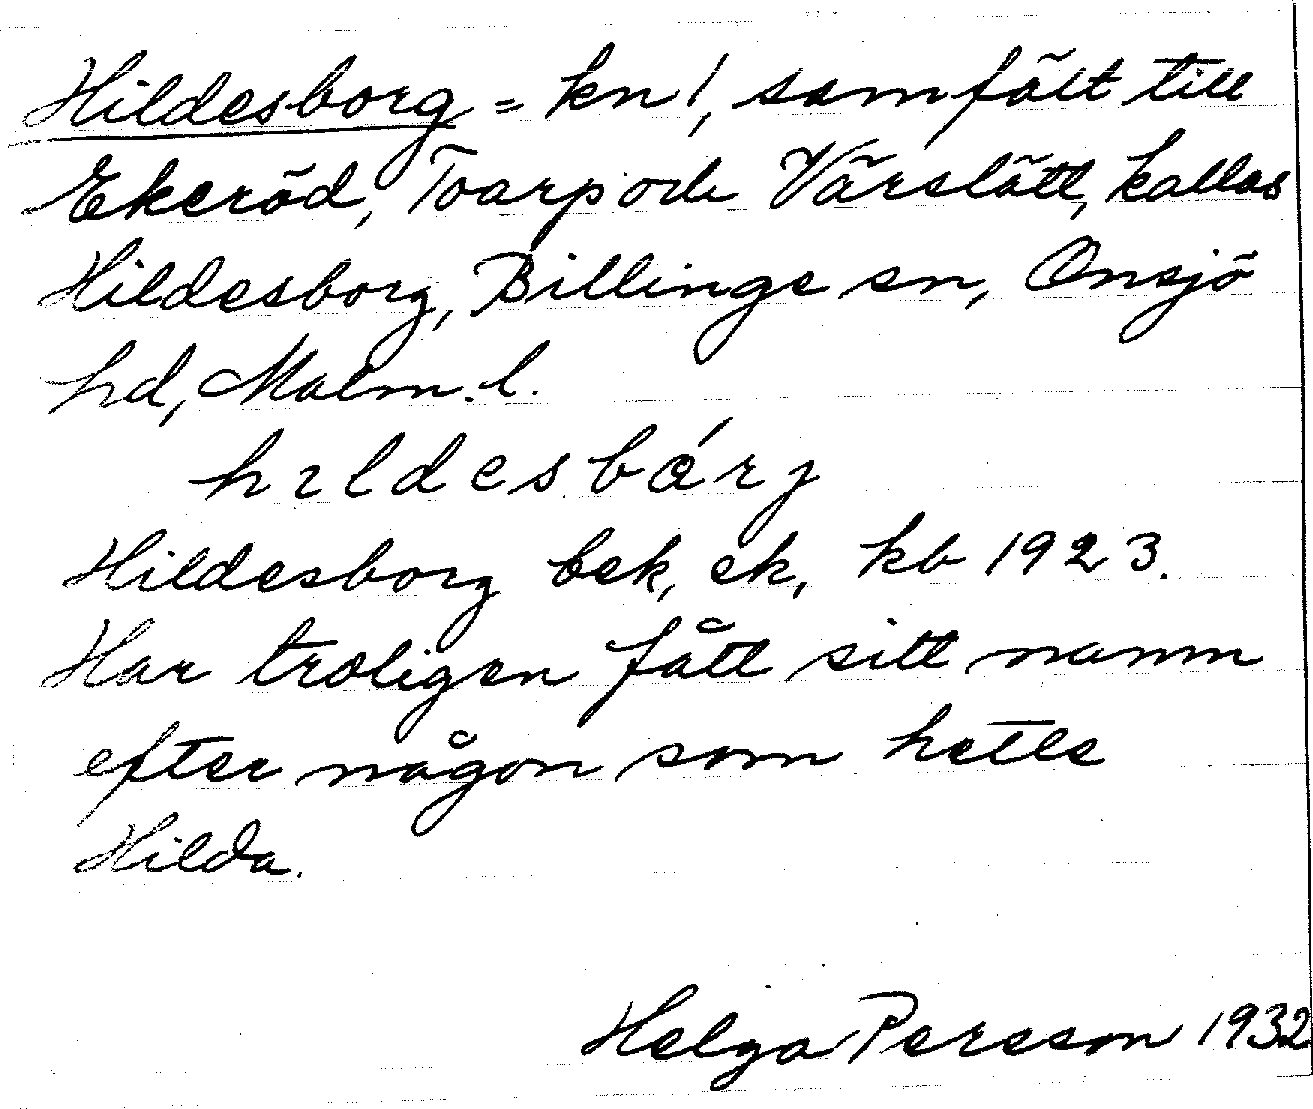 Hildesborg = kn!, samfält till
Ekeröd, Toarp och Vårslätt, kallas
Hildesborg, Billinge sn, Onsjö
hd, Malm. l.
hıldesbárj
Hildesborg bek, ek, kb 1923.
Har troligen fått sitt namn
efter någon som hette
Hilda.
Helga Persson 1932